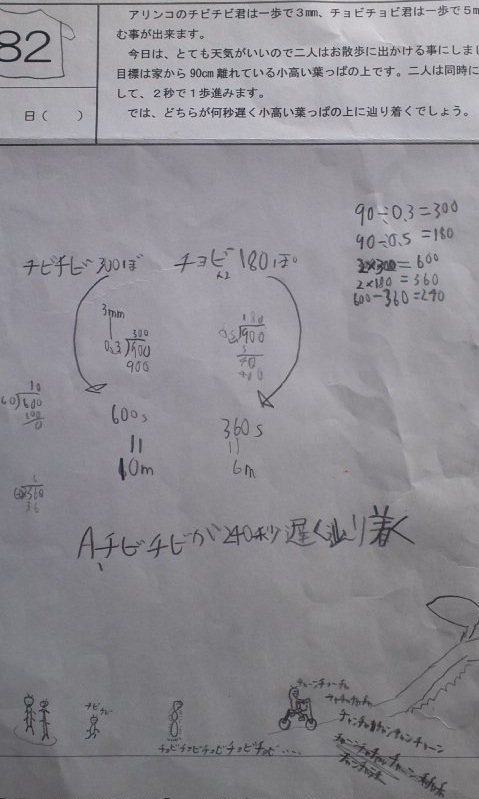 82
日(　　)
アリンコのチビチビ君は一歩で３mm、チョビチョビ君は一歩で５m
む事が出来ます。
今日は、とても天気がいいので二人はお散歩に出かける事にしまし
目標は家から 90cm 離れている小高い葉っぱの上です。二人は同時に
して、２秒で１歩進みます。
では、どちらが何秒遅く小高い葉っぱの上に辿り着くでしょう。
90÷0.3=300
90÷0.5=180
2×300=600
2×180=360
600-360=240
チビチビ300ぽ
チョビ×2 180ぽ
3mm
300
0.3)900
900
180
0.5)900
5
40
400
10
60)600
600
0
600s
360s
10m
6m
6
60)360
36
A.チビチビが240秒遅く辿り着く
チビチビ
チョビチョビチョビチョビチョビ....
チャーンチャーチャ
チャンチャンチャンチャンチャーン